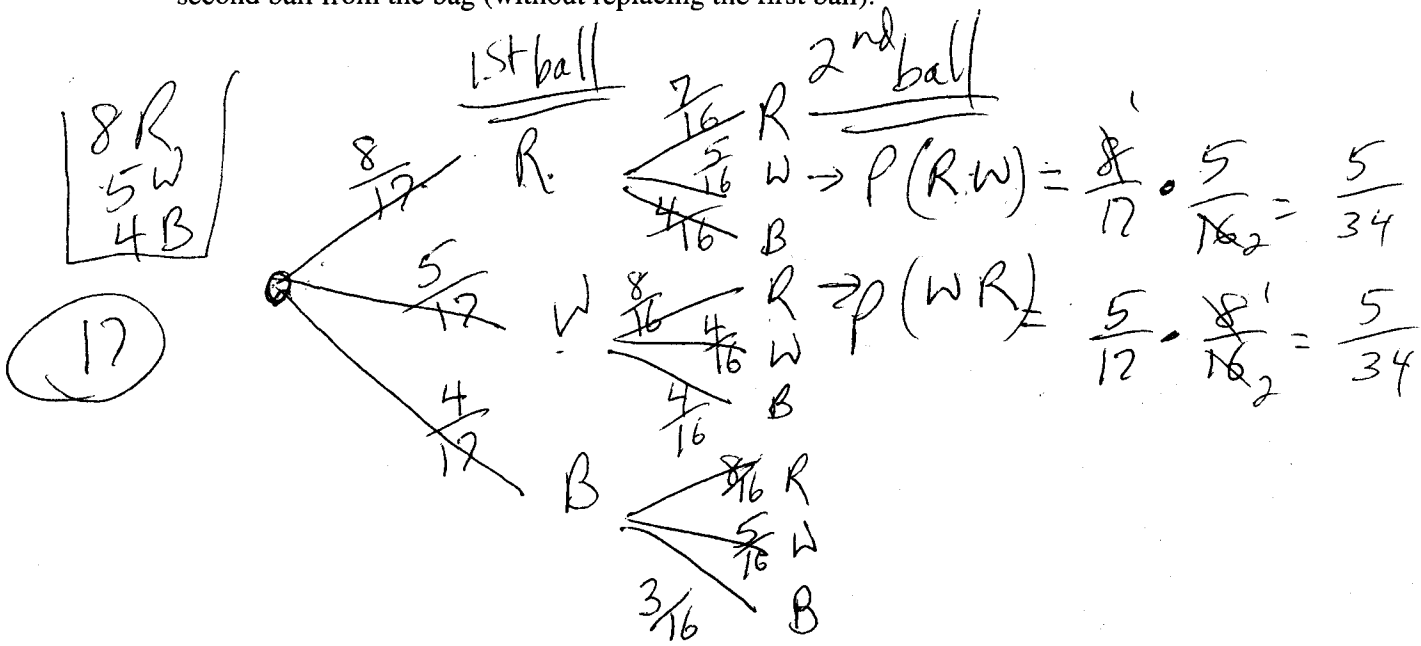 second ball from the bag (without replacing the first ball).
1st ball 2nd ball
8 R
5 W
4 B
17
8/17 R
7/16 R
5/16 W → P(R.W) = 8/17 • 5/16 = 5/34
1 2
4/16 B
5/17 W
8/16 R → P(WR) = 5/17 • 8/16 = 5/34
1 2
4/16 W
4/16 B
4/17 B
8/16 R
5/16 W
3/16 B